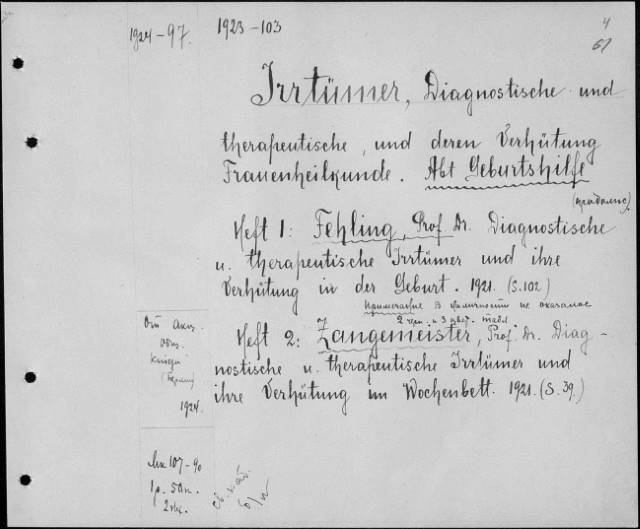 1924-97.
1923-103
4
61
Irrtümer, Diagnostische und
therapeutische, und deren Verhütung
Frauenheilkunde. Abt Geburtshilfe
Heft 1: Fehling, Prof. Dr. Diagnostische
u. therapeutische Irrtümer und ihre
Verhütung in der Geburt. 1921. (S. 102)
Примечание В наличности не оказалось
Heft 2: Zangemeister, Prof. Dr. Diag-
nostische u. therapeutische Irrtümer und
ihre Verhütung im Wochenbett. 1921. (S. 39.)
От Акц.
общ.
Книга
(Берлин)
1924.
107-90
1р. 50к.